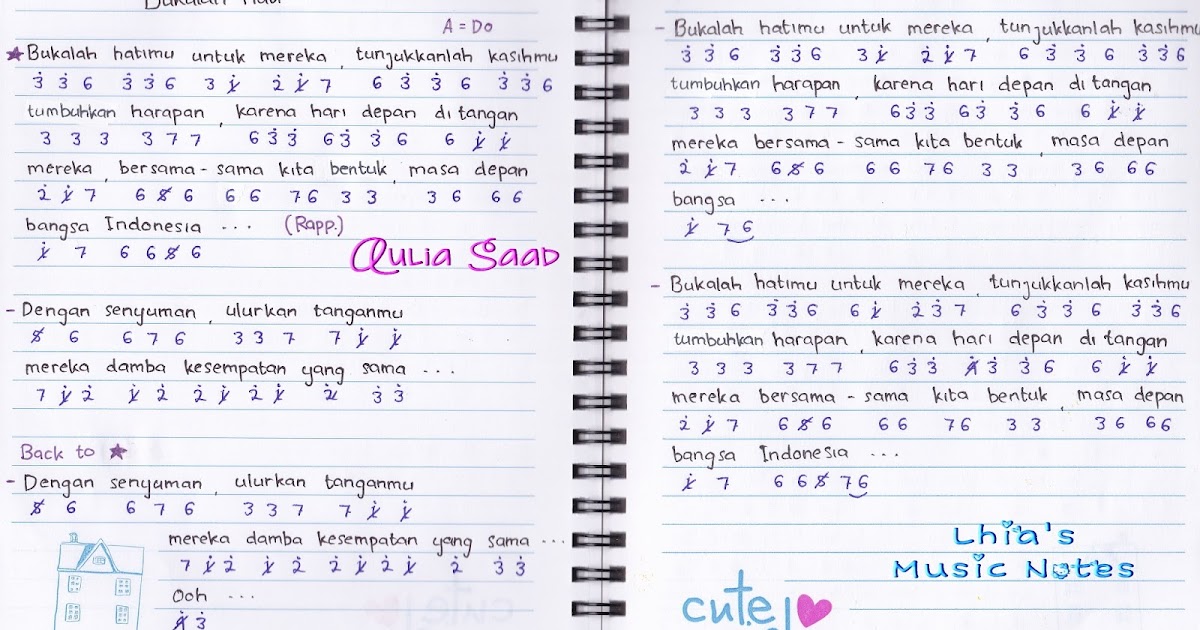 A = Do
★ Bukalah hatimu untuk mereka, tunjukkanlah kasihmu
3̇ 3̇ 6 3̇ 3̇ 6 3 1̸̇ 2̇ 1̸̇ 7 6 3̇ 3̇ 6 3̇ 3̇ 6
tumbuhkan harapan, karena hari depan di tangan
3 3 3 3 7 7 6 3̇ 3̇ 6 3̇ 3̇ 6 6 1̸̇ 1̸̇
mereka, bersama-sama kita bentuk, masa depan
2̇ 1̸̇ 7 6 5̸ 6 6 6 7 6 3 3 3 6 6 6
bangsa Indonesia ... (Rapp.)
1̸̇ 7 6 6 5̸ 6
Aulia Saad
- Dengan senyuman, ulurkan tanganmu
5̸ 6 6 7 6 3 3 7 7 1̸̇ 1̸̇
mereka damba kesempatan yang sama ...
7 1̸̇ 2̇ 1̸̇ 2̇ 2̇ 1̸̇ 2̇ 1̸̇ 2̇ 3̇ 3̇
Back to ★
- Dengan senyuman, ulurkan tanganmu
5̸ 6 6 7 6 3 3 7 7 1̸̇ 1̸̇
mereka damba kesempatan yang sama ...
7 1̸̇ 2̇ 1̸̇ 2̇ 2̇ 1̸̇ 2̇ 1̸̇ 2̇ 3̇ 3̇
Ooh ...
4̸̇ 3̇
- Bukalah hatimu untuk mereka, tunjukkanlah kasihmu
3̇ 3̇ 6 3̇ 3̇ 6 3 1̸̇ 2̇ 1̸̇ 7 6 3̇ 3̇ 6 3̇ 3̇ 6
tumbuhkan harapan, karena hari depan di tangan
3 3 3 3 7 7 6 3̇ 3̇ 6 3̇ 3̇ 6 6 1̸̇ 1̸̇
mereka bersama-sama kita bentuk, masa depan
2̇ 1̸̇ 7 6 5̸ 6 6 6 7 6 3 3 3 6 6 6
bangsa ...
1̸̇ 7 6
- Bukalah hatimu untuk mereka, tunjukkanlah kasihmu
3̇ 3̇ 6 3̇ 3̇ 6 6 1̸̇ 2̇ 3̇ 7 6 3̇ 3̇ 6 3̇ 3̇ 6
tumbuhkan harapan, karena hari depan di tangan
3 3 3 3 7 7 6 3̇ 3̇ 4̸̇ 3̇ 3̇ 6 6 1̸̇ 1̸̇
mereka bersama-sama kita bentuk, masa depan
2̇ 1̸̇ 7 6 5̸ 6 6 6 7 6 3 3 3 6 6 6
bangsa Indonesia ...
1̸̇ 7 6 6 5̸ 7 6
Lhia's
Music Notes
cute!